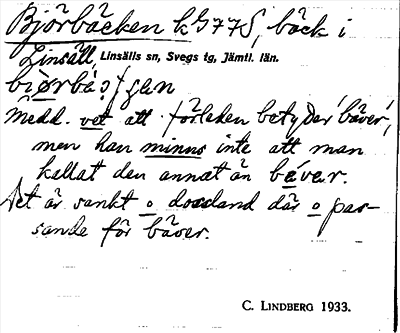 Björbäcken k G77S, bäck i
Linsäll, Linsälls sn, Svegs tg, Jämtl. län.
Medd. vet att förleden betyder 'bäver',
men han minns inte att man
kallat den annat än bäver.
Det är sankt o. där o pas-
sande för bäver.
C. LINDBERG 1933.